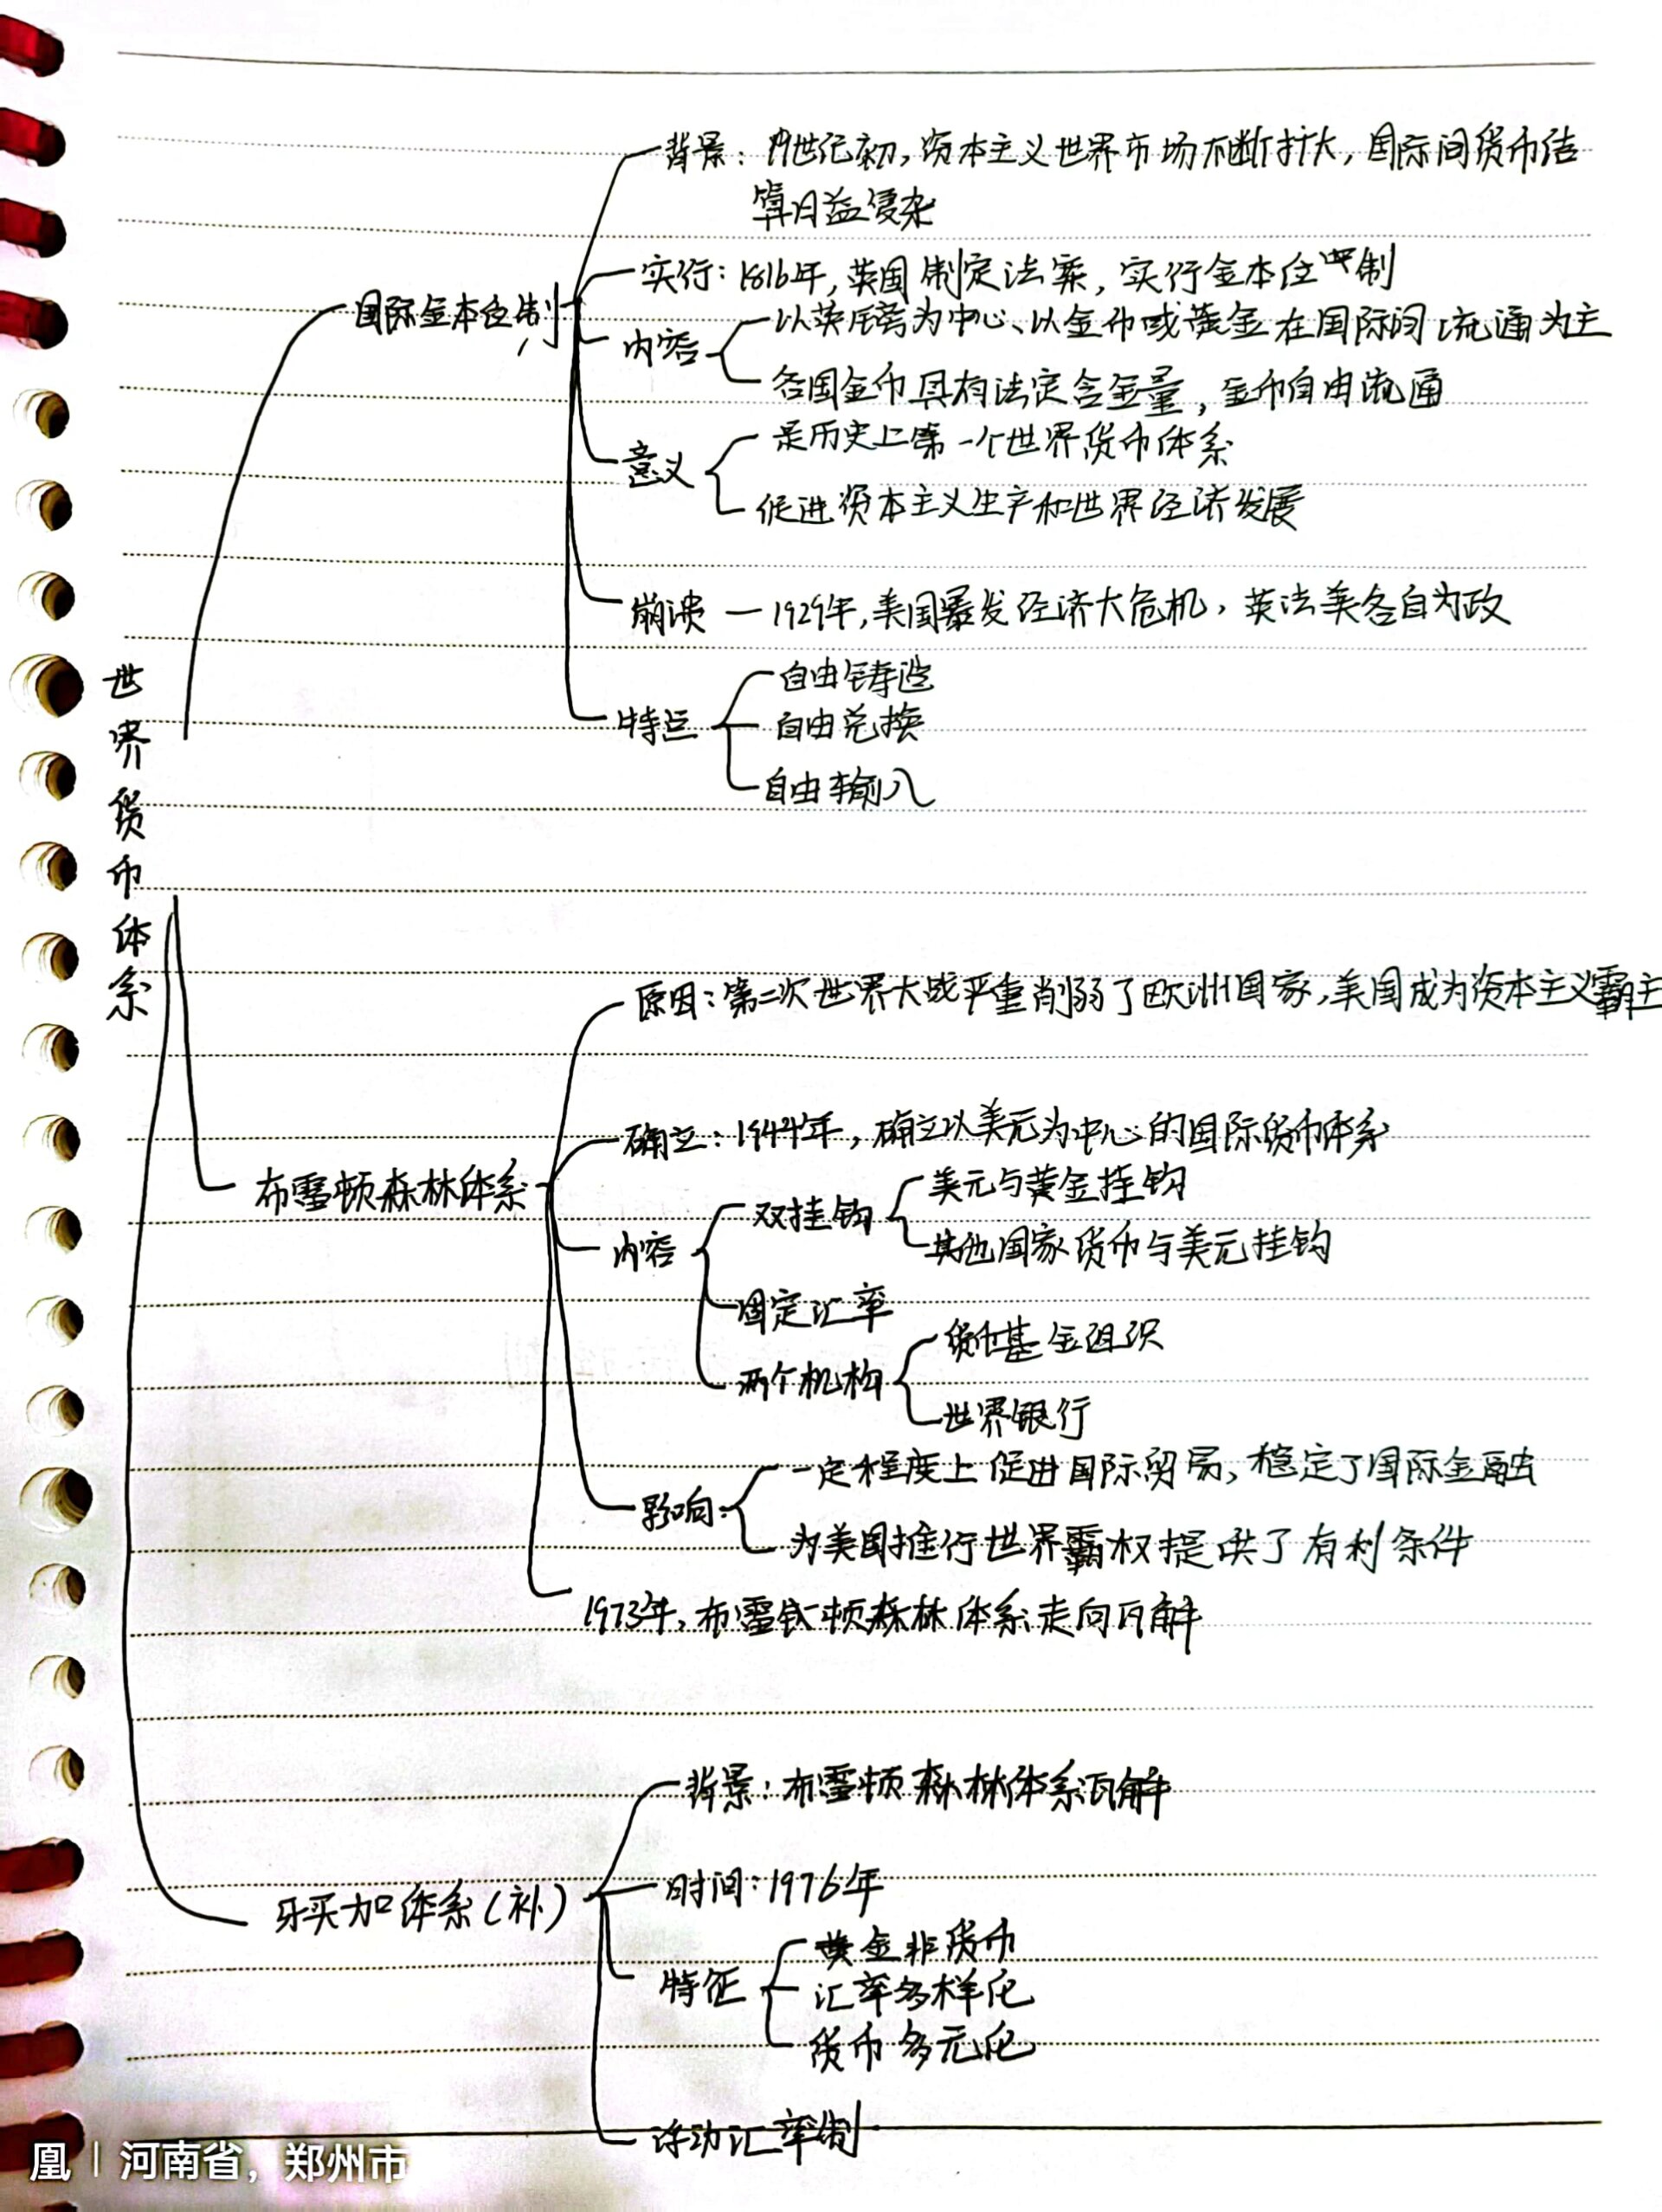 背景：19世纪初，资本主义世界市场不断扩大，国际间货币结
算日益复杂
实行：1816年，英国制定法案，实行金本位制
国际金本位制
内容
以英镑为中心、以金币或黄金在国际间流通为主
各国金币具有法定含金量，金币自由流通
意义
是历史上第一个世界货币体系
促进资本主义生产和世界经济发展
崩溃 — 1929年，美国暴发经济大危机，英法美各自为政
特点
自由铸造
自由兑换
自由输入
世界货币体系
原因：第二次世界大战严重削弱了欧洲国家，美国成为资本主义霸主
确立：1944年，确立以美元为中心的国际货币体系
布雷顿森林体系
内容
双挂钩
美元与黄金挂钩
其他国家货币与美元挂钩
固定汇率
两个机构
货币基金组织
世界银行
影响
一定程度上促进国际贸易，稳定了国际金融
为美国推行世界霸权提供了有利条件
1973年，布雷顿森林体系走向瓦解
背景：布雷顿森林体系瓦解
时间：1976年
牙买加体系（补）
特征
黄金非货币
汇率多样化
货币多元化
浮动汇率制
凰｜河南省，郑州市